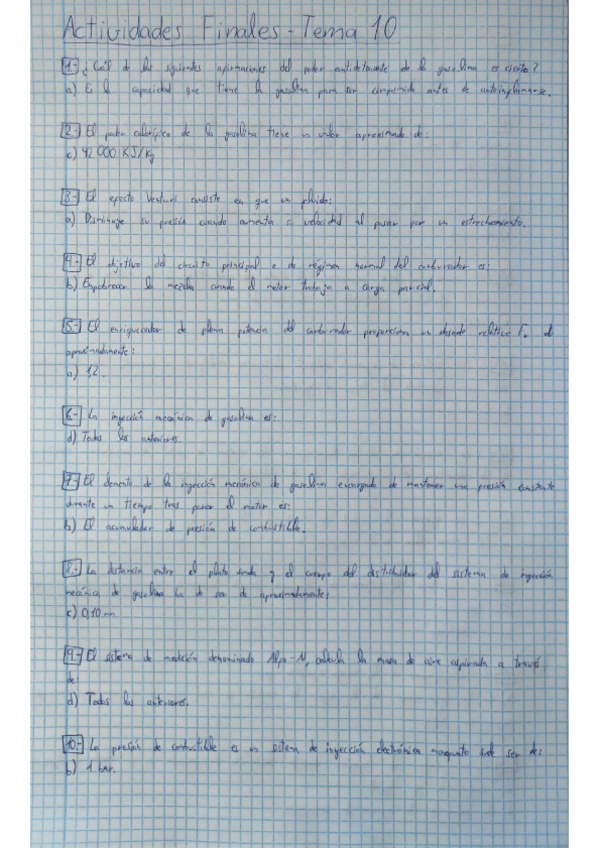 Actividades Finales - Tema 10
1.- ¿Cuál de las siguientes afirmaciones del poder antidetonante de la gasolina es cierta?
a) Es la capacidad que tiene la gasolina para ser comprimida antes de autoinflamarse.
2.- El poder calorífico de la gasolina tiene un valor aproximado de:
c) 42 000 KJ/Kg
3.- El efecto Venturi consiste en que un fluido:
a) Disminuye su presión cuando aumenta su velocidad al pasar por un estrechamiento.
4.- El objetivo del circuito principal o de régimen normal del carburador es:
b) Empobrecer la mezcla cuando el motor trabaja a carga parcial.
5.- El enriquecedor de plena potencia del carburador proporciona un dosado relativo Fr de
aproximadamente:
a) 1,2.
6.- La inyección mecánica de gasolina es:
d) Todas las anteriores.
7.- El elemento de la inyección mecánica de gasolina encargado de mantener una presión constante
durante un tiempo tras parar el motor es:
b) El acumulador de presión de combustible.
8.- La distancia entre el plato sonda y el cuerpo del distribuidor del sistema de inyección
mecánica de gasolina ha de ser de aproximadamente:
c) 0,10 mm
9.- El sistema de medición denominado Alfa-N, calcula la masa de aire aspirada a través
de:
d) Todas las anteriores.
10.- La presión de combustible en un sistema de inyección electrónica monopunto suele ser de:
b) 1 bar.